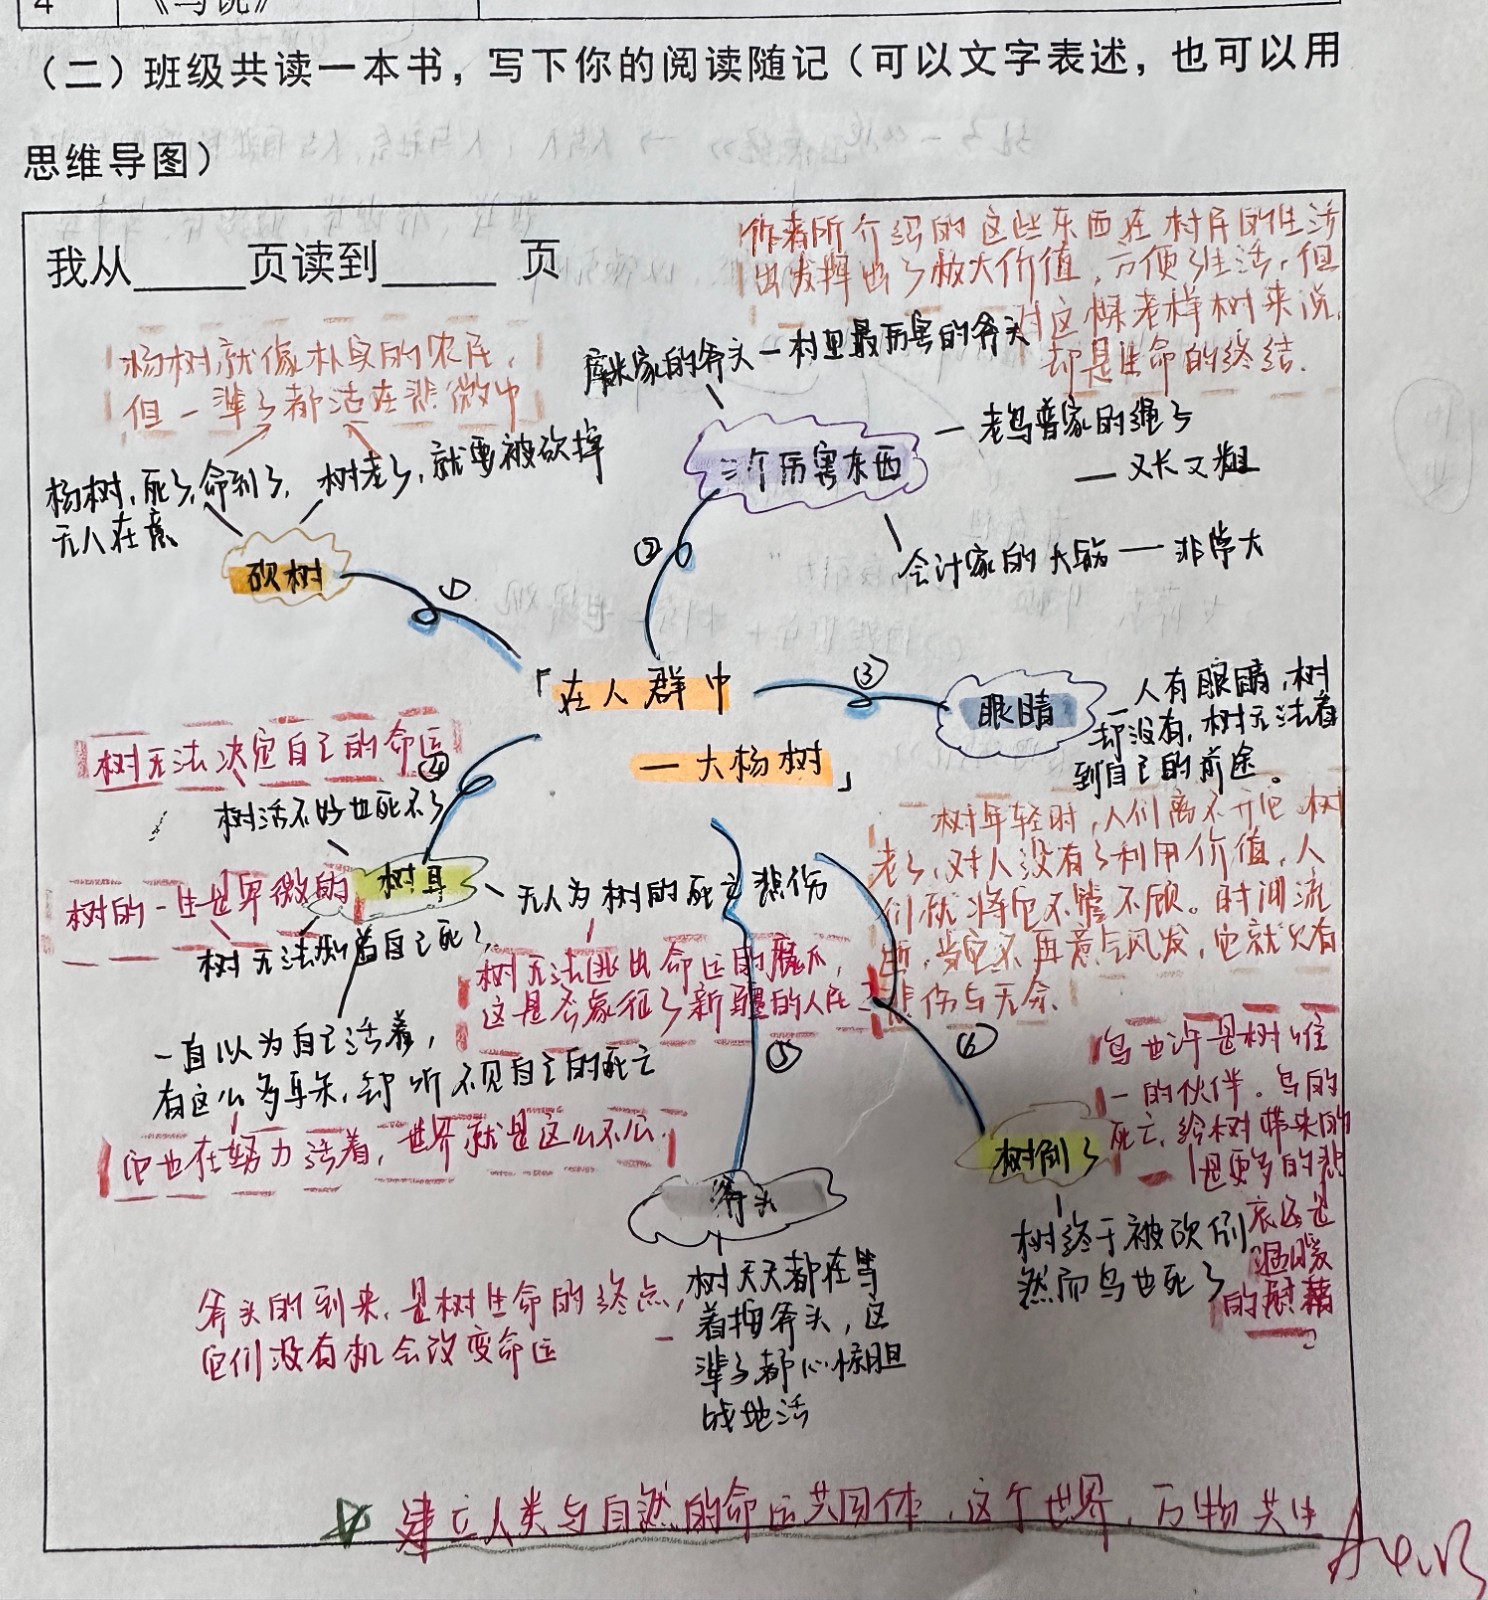 4 《马说》
（二）班级共读一本书，写下你的阅读随记（可以文字表述，也可以用
思维导图）
我从_____页读到_____ 页
作者所介绍的这些东西在村民的生活
出发挥出了极大价值，方便了生活，但
对这棵老样树来说，
却是生命的终结.
杨树就像朴实的农民，
但一辈子都活在悲微中
家的斧头—村里最厉害的斧头
三个厉害东西
— 老乌普家的绳子
— 又长又粗
会计家的大锯 — 非常大
杨树，死了，命到了，
无人在意
树老了，就要被砍掉
砍树
①
②
「在人群中
— 大杨树」
③
眼睛
— 人有眼睛，树
却没有，树无法看
到自己的前途。
树无法决定自己的命运
④
树活不好也死不了
树耳
树的一生也卑微的
树无法 着自己死
无人为树的死亡悲伤
树无法逃出命运的魔爪，
这是否象征了新疆的人民？
一直以为自己活着，
有这么多耳朵，却听不见自己的死亡
它也在努力活着，世界就是这么不公.
树年轻时，人们离不开它，树
老了，对人没有了利用价值，人
们就将它不管不顾。时间流
逝，当它不再意气风发，它就只有
悲伤与无奈.
⑤
⑥
鸟也许是树唯
一的伙伴。鸟的
死亡，给树带来的
是更多的悲
哀还是
温暖
的慰藉
树倒了
树终于被砍倒
然而鸟也死了
斧头
树天天都在等
着拥斧头，这
辈子都心惊胆
战地活
斧头的到来，是树生命的终点，
它们没有机会改变命运
☆ 建立人类与自然的命运共同体，这个世界，万物共生